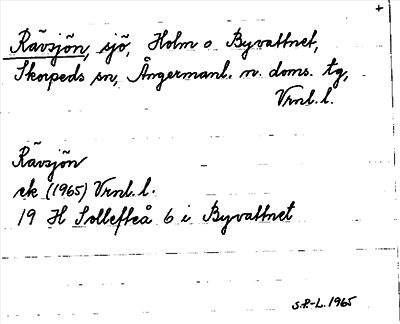 +
Rävsjön, sjö, Holm o Byvattnet,
Skorpeds sn, Ångermanl. n. doms. tg,
Vrnl.l.
Rävsjön
ek (1965) Vrnl.l.
19 H Sollefteå 6 i Byvattnet
S.P.-L. 1965